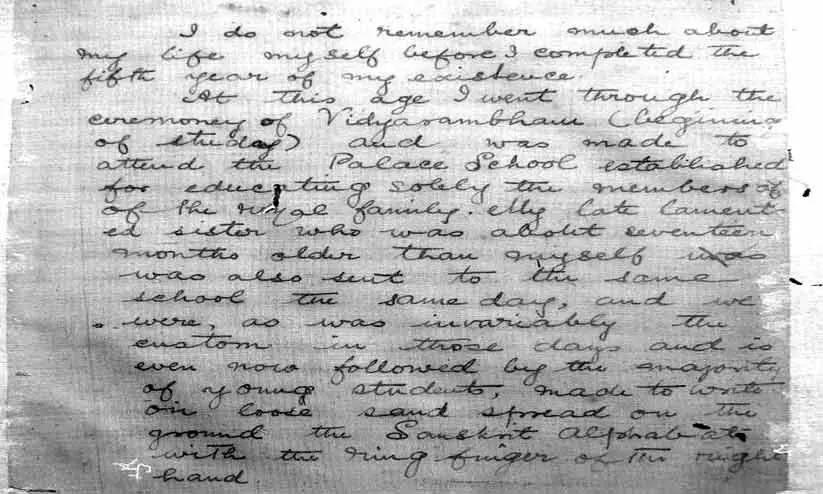 I do not remember much about
my life myself before I completed the
fifth year of my existence.
At this age I went through the
ceremoney of Vidyarambham (beginning
of study) and was made to
attend the Palace School established
for educating solely the members of
of the royal family. My late lament-
ed sister who was about seventeen
months older than myself was
was also sent to the same
school the same day, and we
were, as was invariably the
custom in those days and is
even now followed by the majority
of young students, made to write
on loose sand spread on the
ground the Sanskrit Alphabets
with the ring finger of the right
hand.